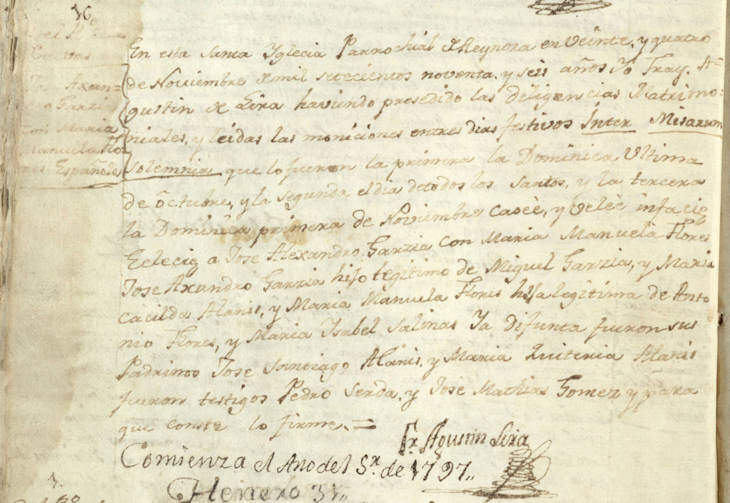 16
En esta Santa Yglecia Parrochial d Reynosa en veinte, y quatro
de Noviembre d mil setecientos noventa, y seis años Yo Fray, A-
gustin d Lira haviendo presedido las diligencias Matrimo-
niales, y leidas las moniciones en tres dias festivos Inter Misarum
Solemnia que lo fueron la primera la Dominica Ultima
de Octubre, y la segunda el dia de todos los Santos, y la tercera
la Dominica primera de Noviembre casè, y velè infacie
Eclecig a Jose Alexandro Garzia con Maria Manuela Flores
Jose Axandro Garzia hijo legitimo de Miguel Garzia, y Maria
Cacilda Alanis, y Maria Manuela Flores hija legitima de Anto
nio Flores, y Maria Ysabel Salinas Ya difunta fueron sus
Padrinos Jose Santiago Alanis, y Maria Quiteria Alanis
fueron testigos Pedro Serda, y Jose Mathias Gomez y para
que conste lo firme. =
Fr. Agustin Lira
Comienza el Año del Sr. de 1797,,
Henero 31,,